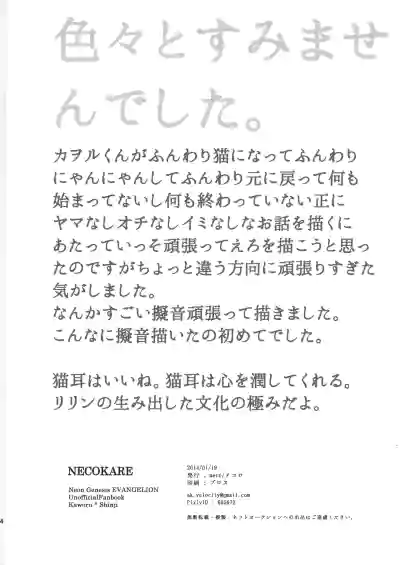 色々とすみませ
んでした。
カヲルくんがふんわり猫になってふんわり
にゃんにゃんしてふんわり元に戻って何も
始まってないし何も終わっていない正に
ヤマなしオチなしイミなしなお話を描くに
あたっていっそ頑張ってえろを描こうと思っ
たのですがちょっと違う方向に頑張りすぎた
気がしました。
なんかすごい擬音頑張って描きました。
こんなに擬音描いたの初めてでした。
猫耳はいいね。猫耳は心を潤してくれる。
リリンの生み出した文化の極みだよ。
NECOKARE
Neon Genesis EVANGELION
UnofficialFanbook
Kaworu * Shinji
2014/01/19
発行 : mero/メロコ
印刷 : プロス
ak.velocity@gmail.com
PixivID :
無断転載・複製、ネットオークションへの出品はご遠慮ください。
4